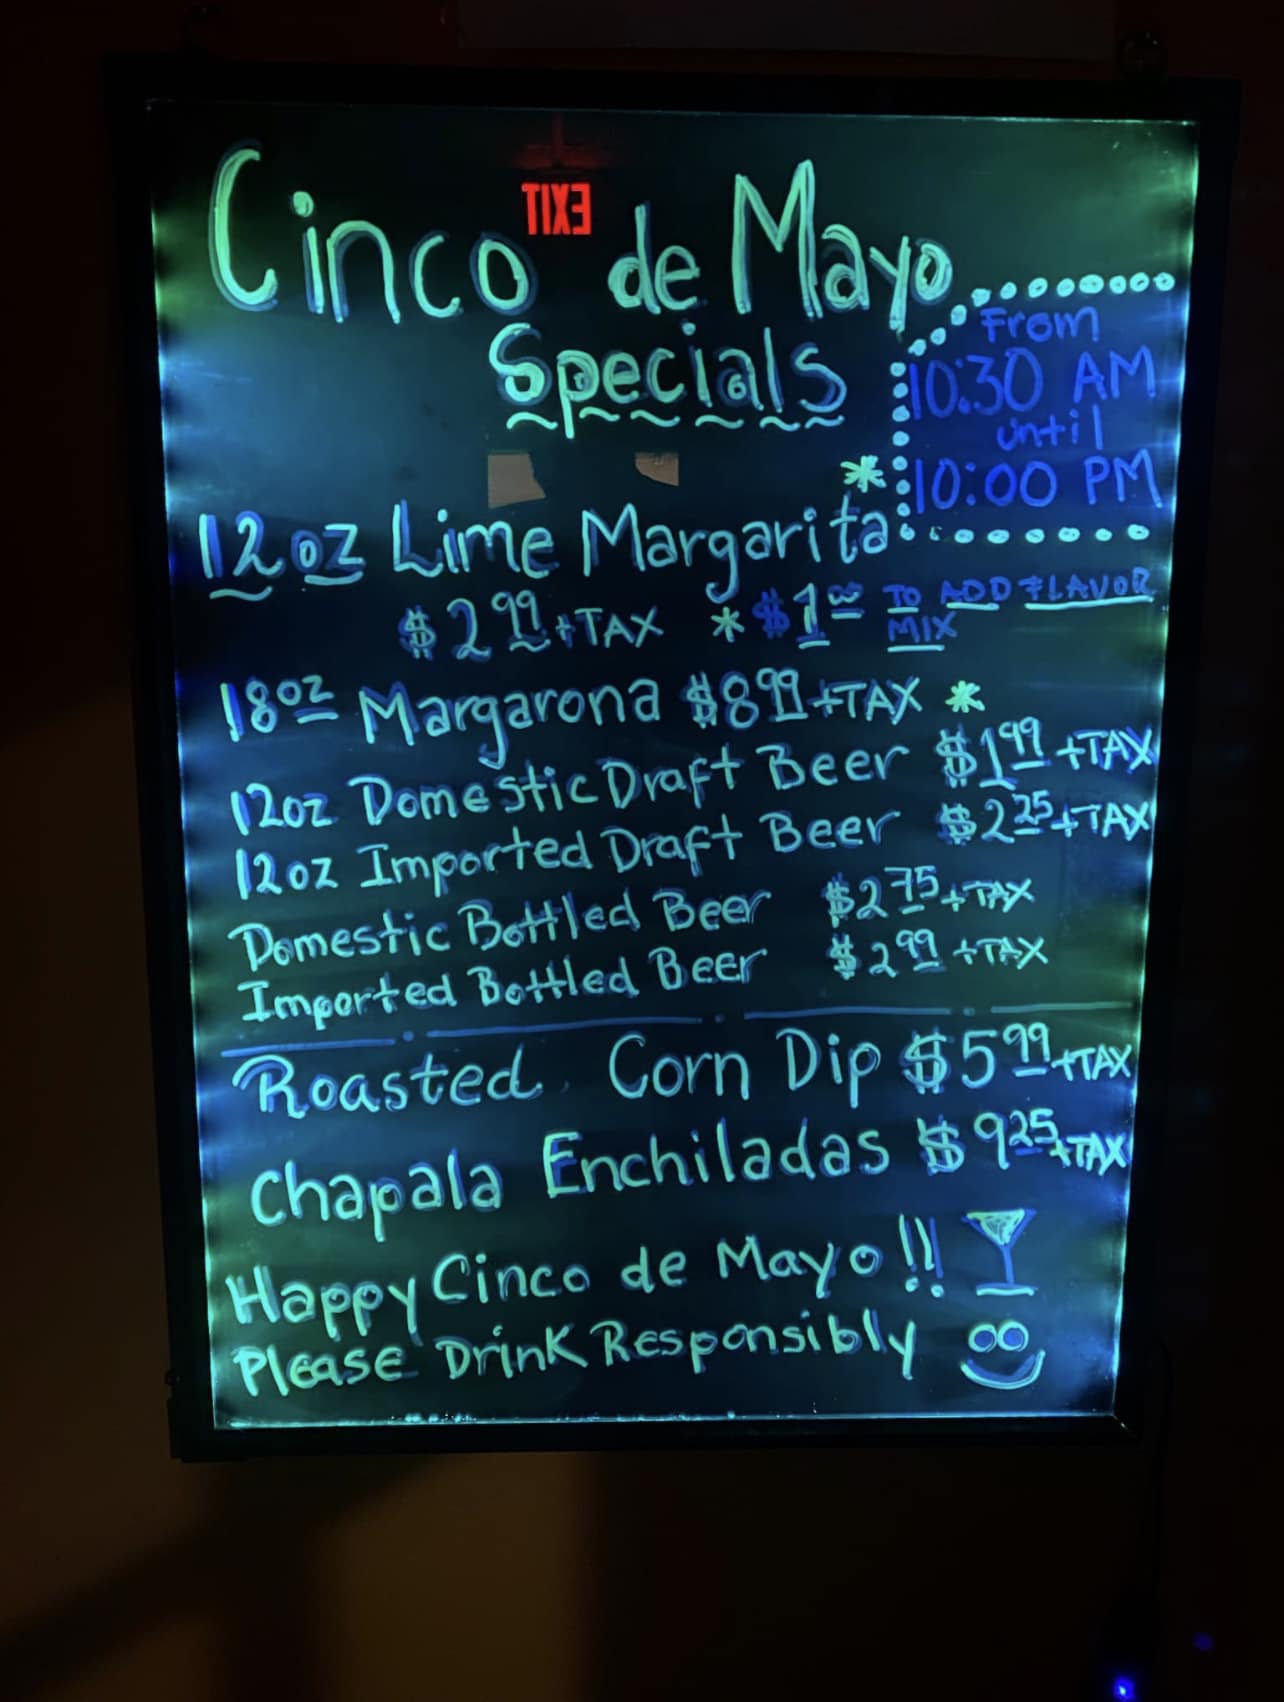 Cinco de Mayo
EXIT
Specials
From
10:30 AM
until
10:00 PM
12oz Lime Margarita *
$2.99 + TAX * $1.00 TO ADD FLAVOR
MIX
18oz Margarona $8.99 + TAX *
12oz Domestic Draft Beer $1.99 + TAX
12oz Imported Draft Beer $2.25 + TAX
Domestic Bottled Beer $2.75 + TAX
Imported Bottled Beer $2.99 + TAX
Roasted Corn Dip $5.99 + TAX
Chapala Enchiladas $9.25 + TAX
Happy Cinco de Mayo!!
Please Drink Responsibly